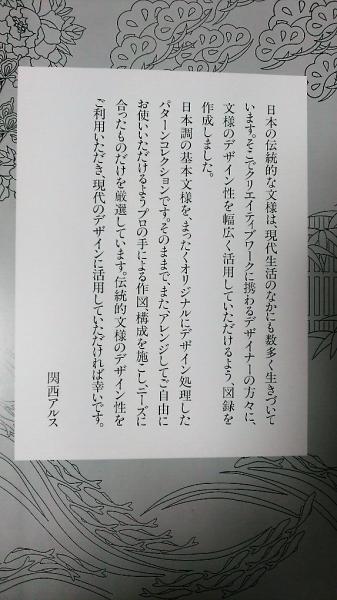 日本の伝統的な文様は、現代生活のなかにも数多く生きづいて
います。そこでクリエイティブワークに携わるデザイナーの方々に、
文様のデザイン性を幅広く活用していただけるよう、図録を
作成しました。
日本調の基本文様を、まったくオリジナルにデザイン処理した
パターンコレクションです。そのままで、また、アレンジしてご自由に
お使いいただけるようプロの手による作図、構成を施し、ニーズに
合ったものだけを厳選しています。伝統的文様のデザイン性を
ご利用いただき、現代のデザインに活用していただければ幸いです。
関西アルス